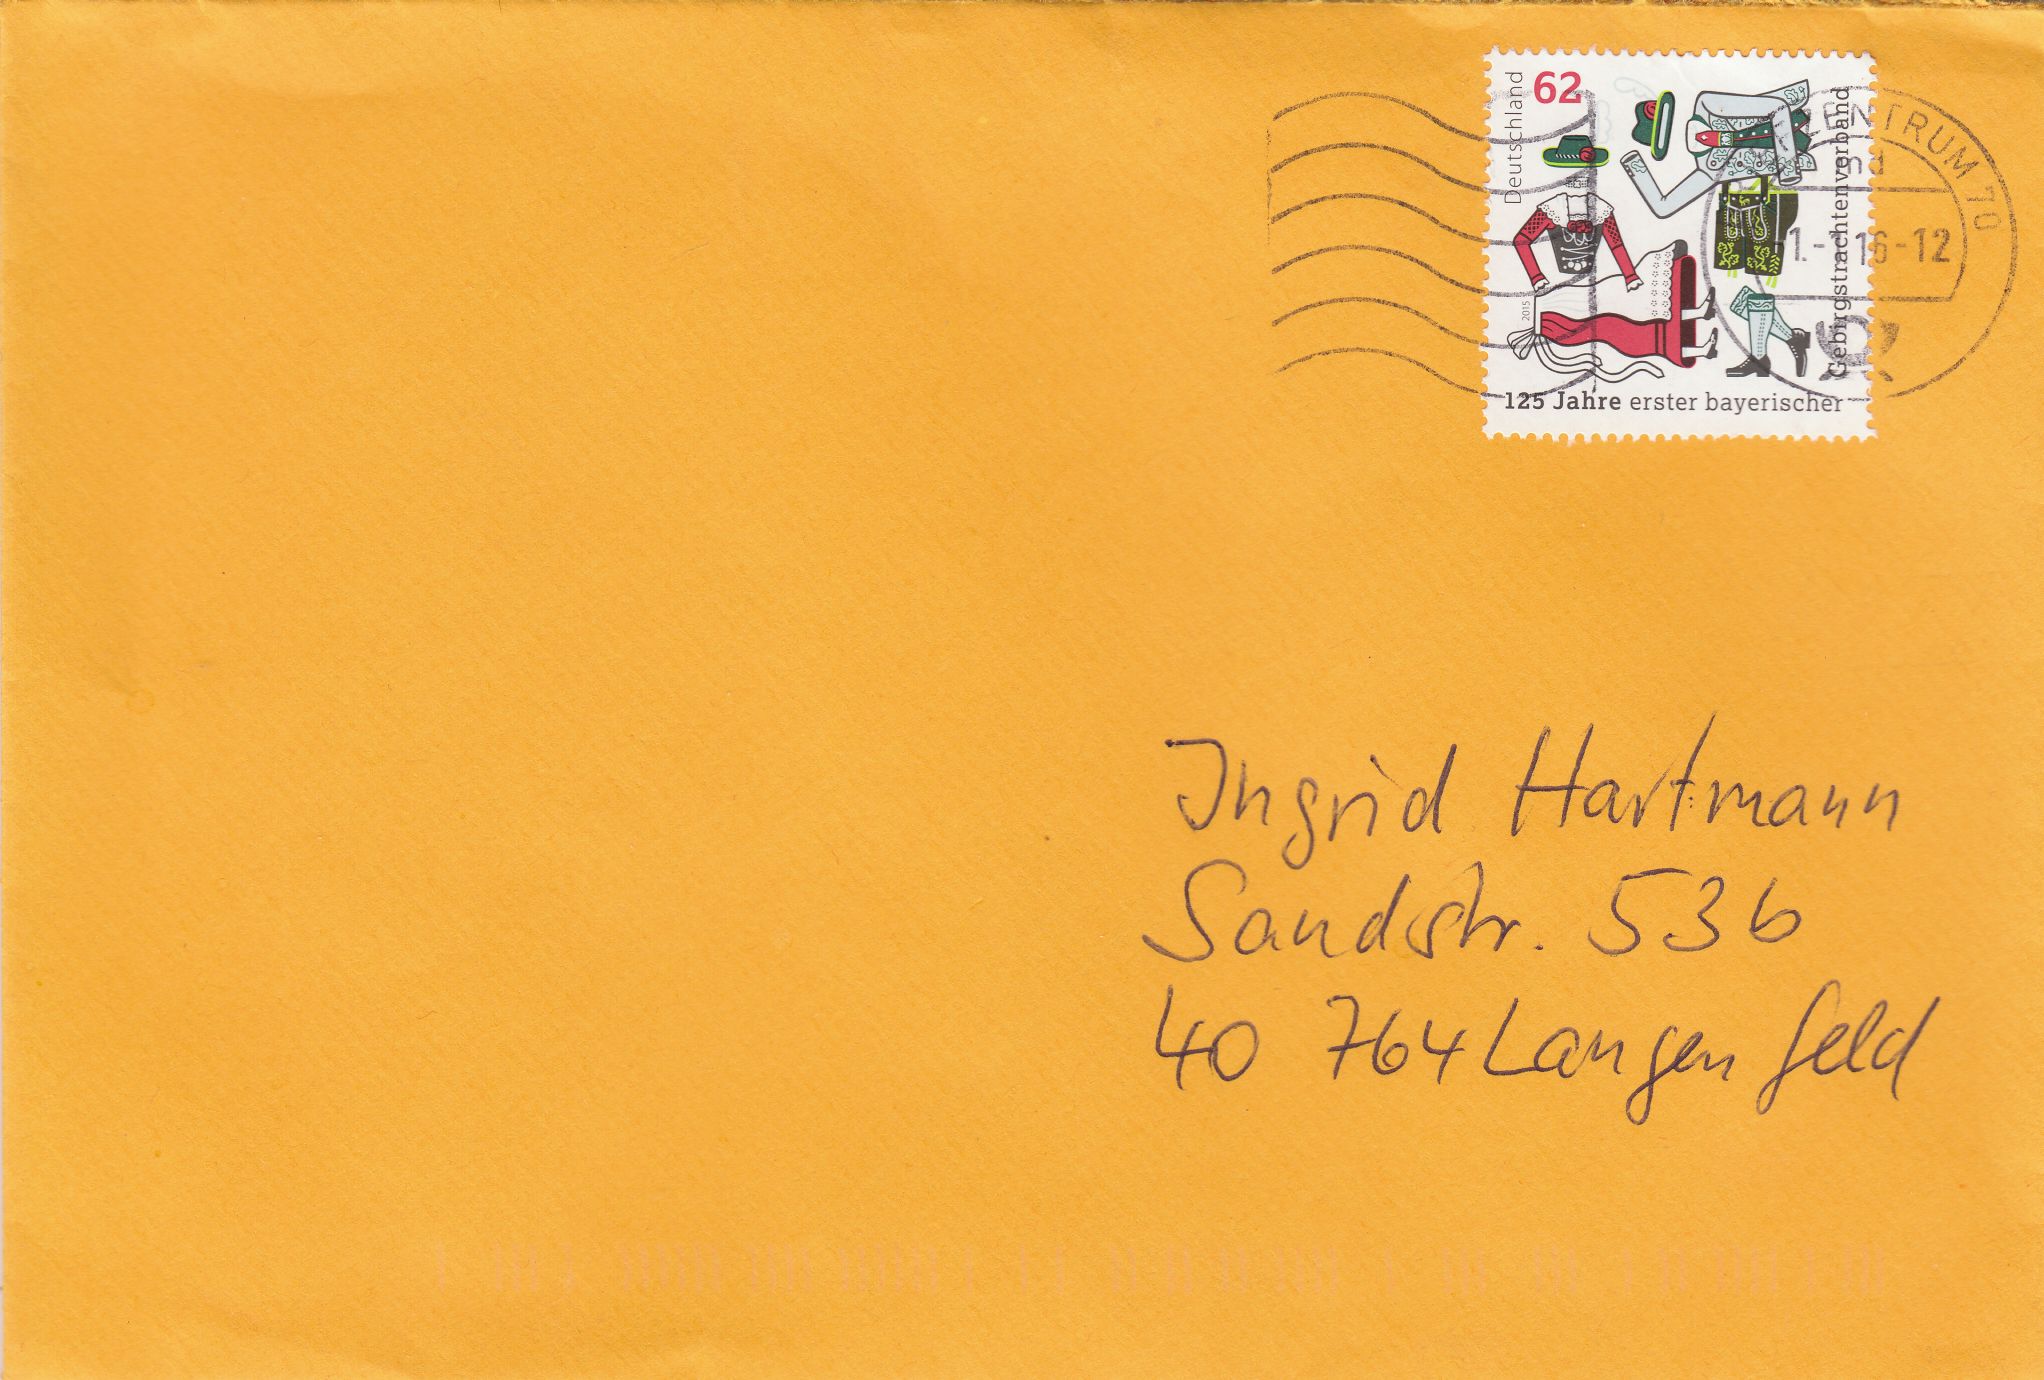 Deutschland
62
2015
125 Jahre erster bayerischer
Gebirgstrachtenverband
ZENTRUM 70
16-12
Ingrid Hartmann
Sandstr. 53b
40 764 Langenfeld